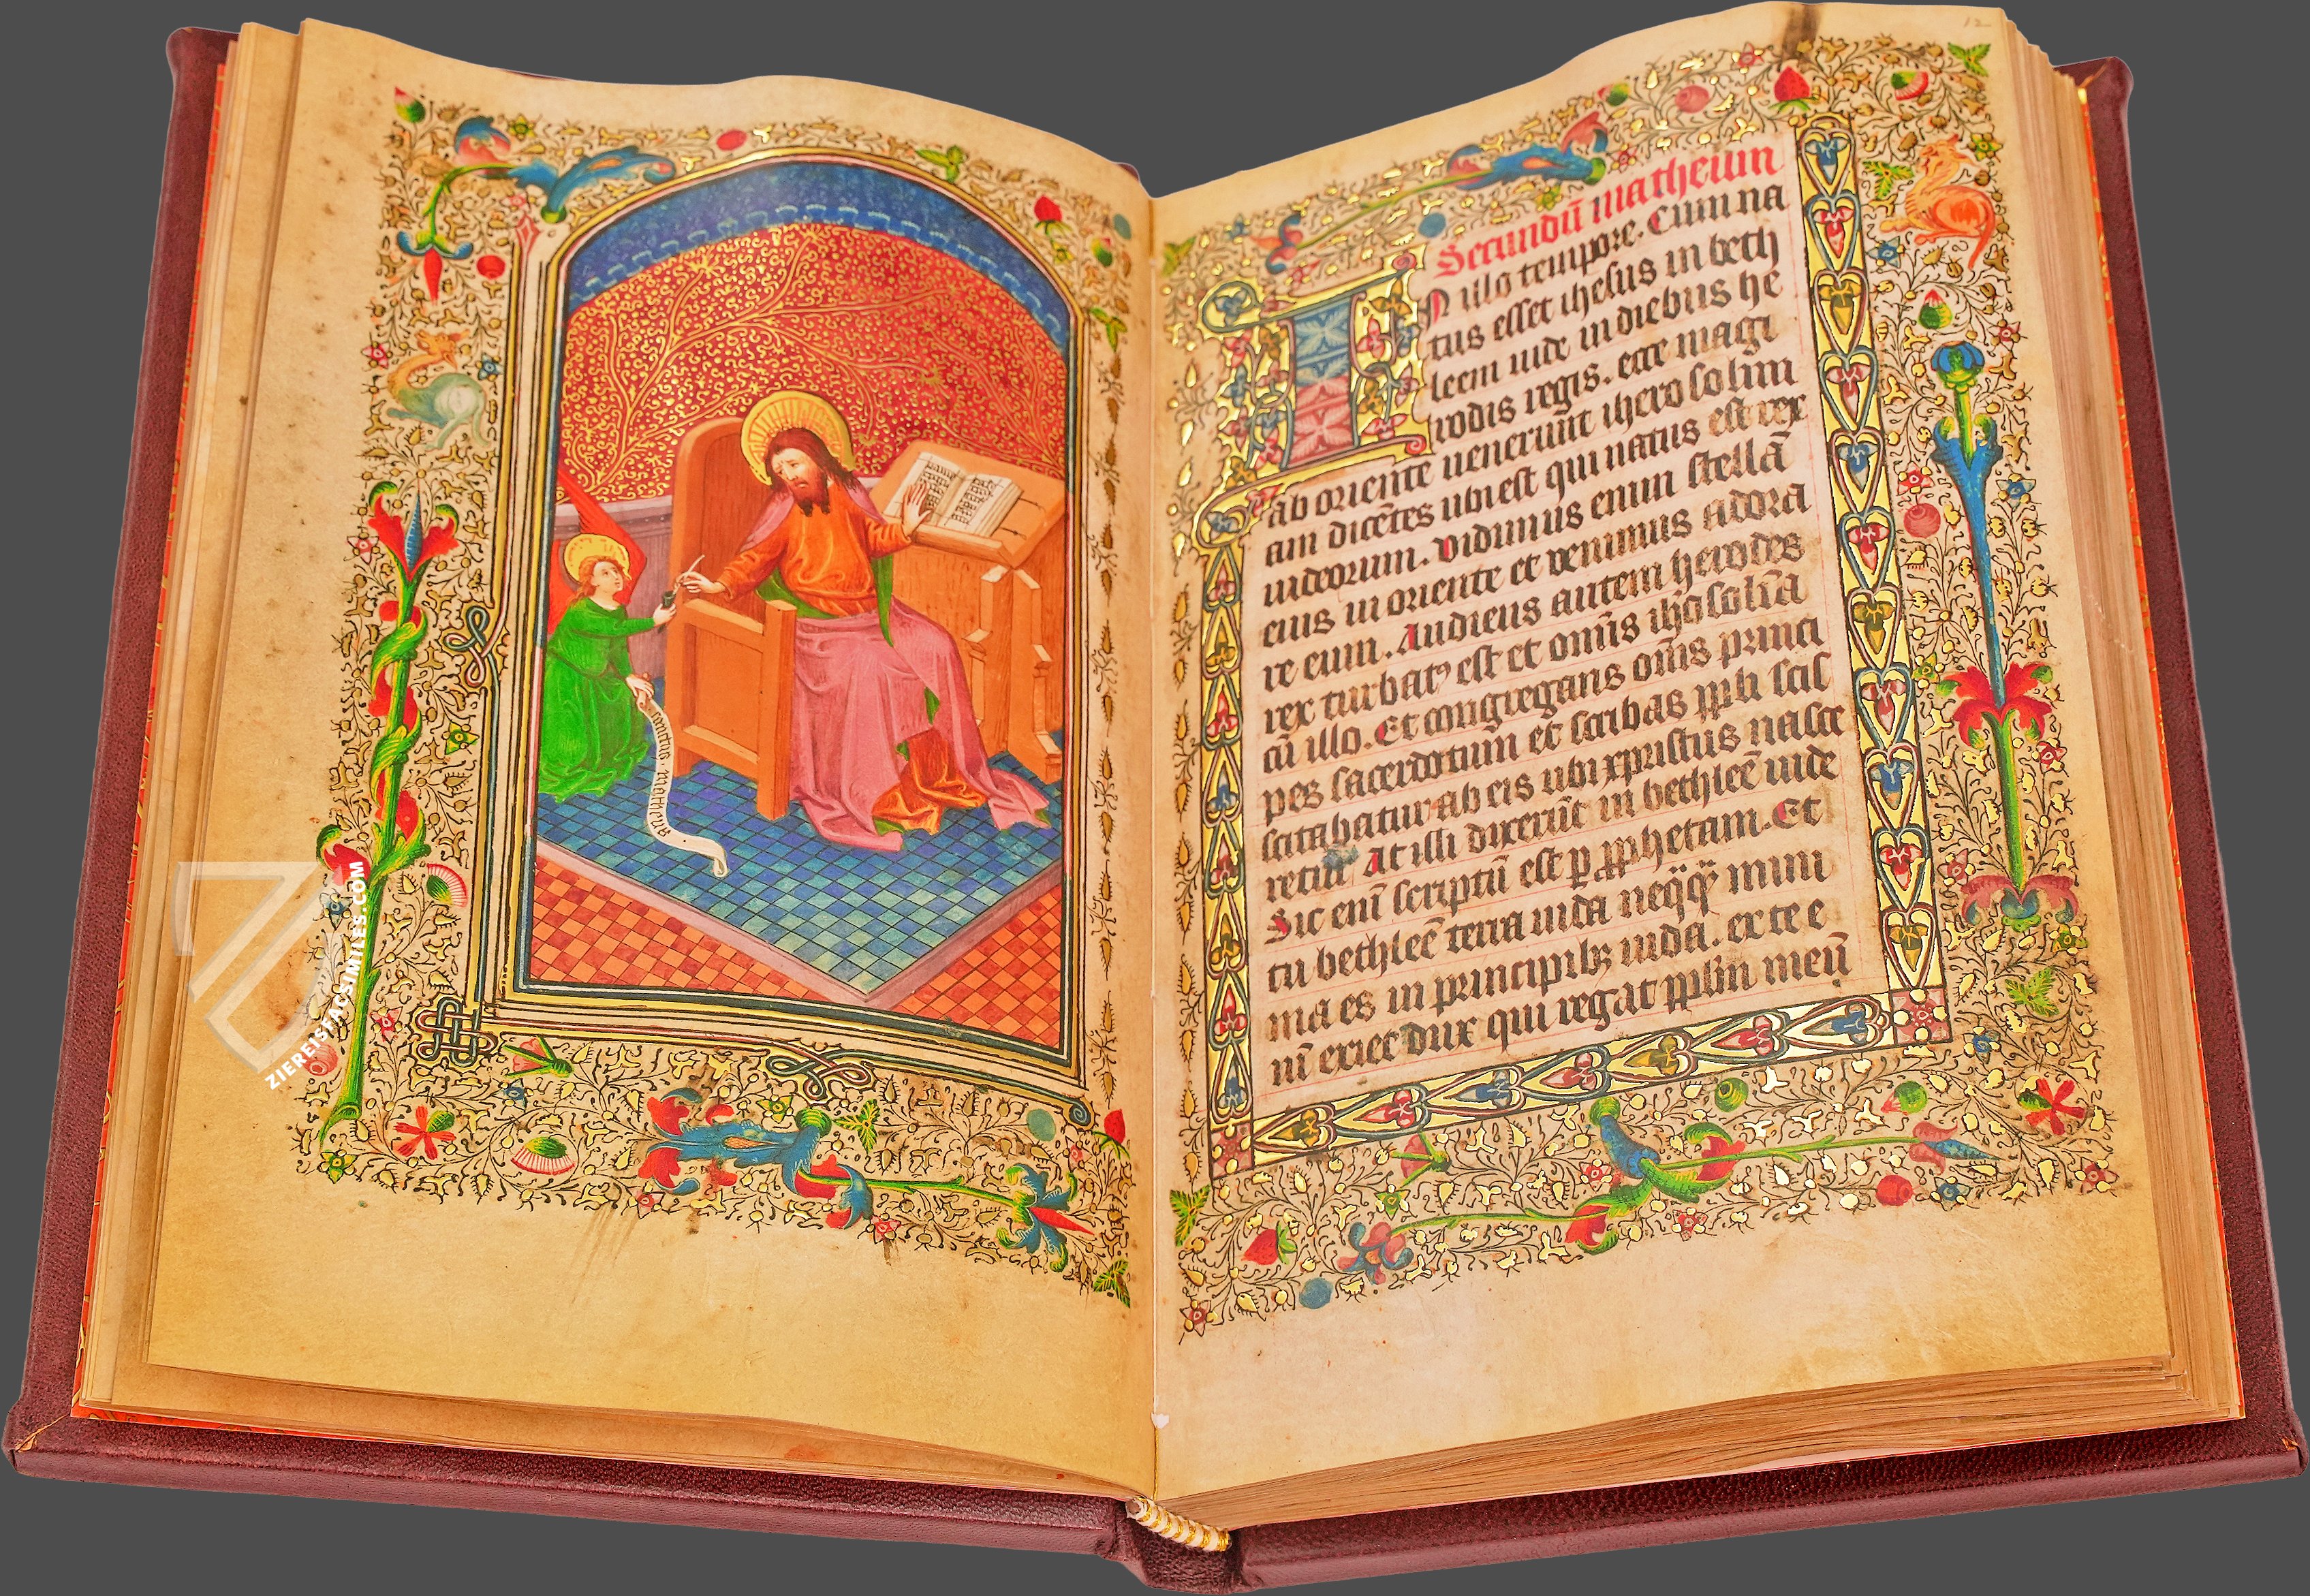 sanctus. matheus
ZIEREISFACSIMILES.COM
12
Secundū matheum
In illo tempore. Cum na
tus esset ihesus in beth
leem iude in diebus he
rodis regis. ecce magi
ab oriente venerunt iherosolim
am dicētes ubi est qui natus est rex
iudeorum. vidimus enim stellā
eius in oriente et venimus adora
re eum. Audiens autem herodes
rex turbatꝰ est et om̄is ih̓osolia
cū illo. Et congregans om̄s princi
pes sacerdotum et scribas ppli scis
citabatur ab eis ubi xpristus nasce
retur At illi dixerūt in bethleē iude
Sic eni scriptū est ꝑ pphetam. Et
tu bethleē terra iuda neq̄q̄ mini
ma es in principibꝫ iuda. ex te e
ni exiet dux qui regat pplm meū